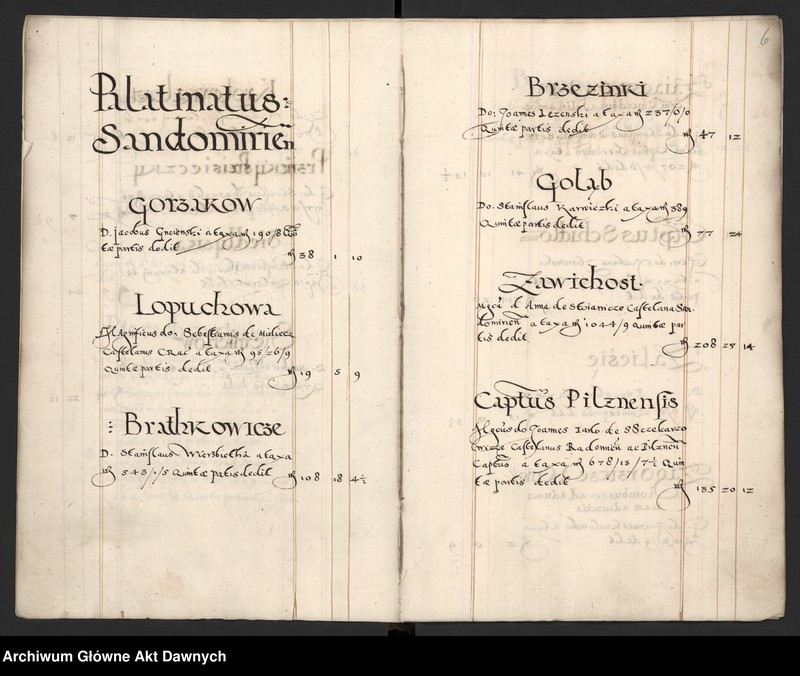 Palatinatus
Sandomirien
Gorzakow
D. Jacobus Gnoienski a taxa m 190/8 Quin
tae partis dedit m 38 1 10
Lopuchowa
Magnificus do: Sebestianus de Mieliecz
Castelanus Crac a taxa m 95/26/9
Quintae partis dedit m 19 5 9
Brathkowicze
D. Stanislaus Wierzbietha a taxa
m 543/1/5 Quintae partis dedit m 108 18 4½
6
Brzezinki
Do: Joannes Lezenski a taxa m 237/0/0
Quintae partis dedit m 47 12
Goląb
Do. Stanislaus Karwiczki a taxa m 389
Quintae partis dedit m 77 24
Zawichost.
d Anna de Castelana San
domirien a taxa m 1044/9 Quintae par
tis dedit m 208 25 14
Captus Pilznensis
do Joannes Tarlo de SSczekarzo
wicze Castelanus Radomien ac Pilznen
Captus a taxa m 678/13/7½ Quin
tae partis dedit m 135 20 12
Archiwum Główne Akt Dawnych